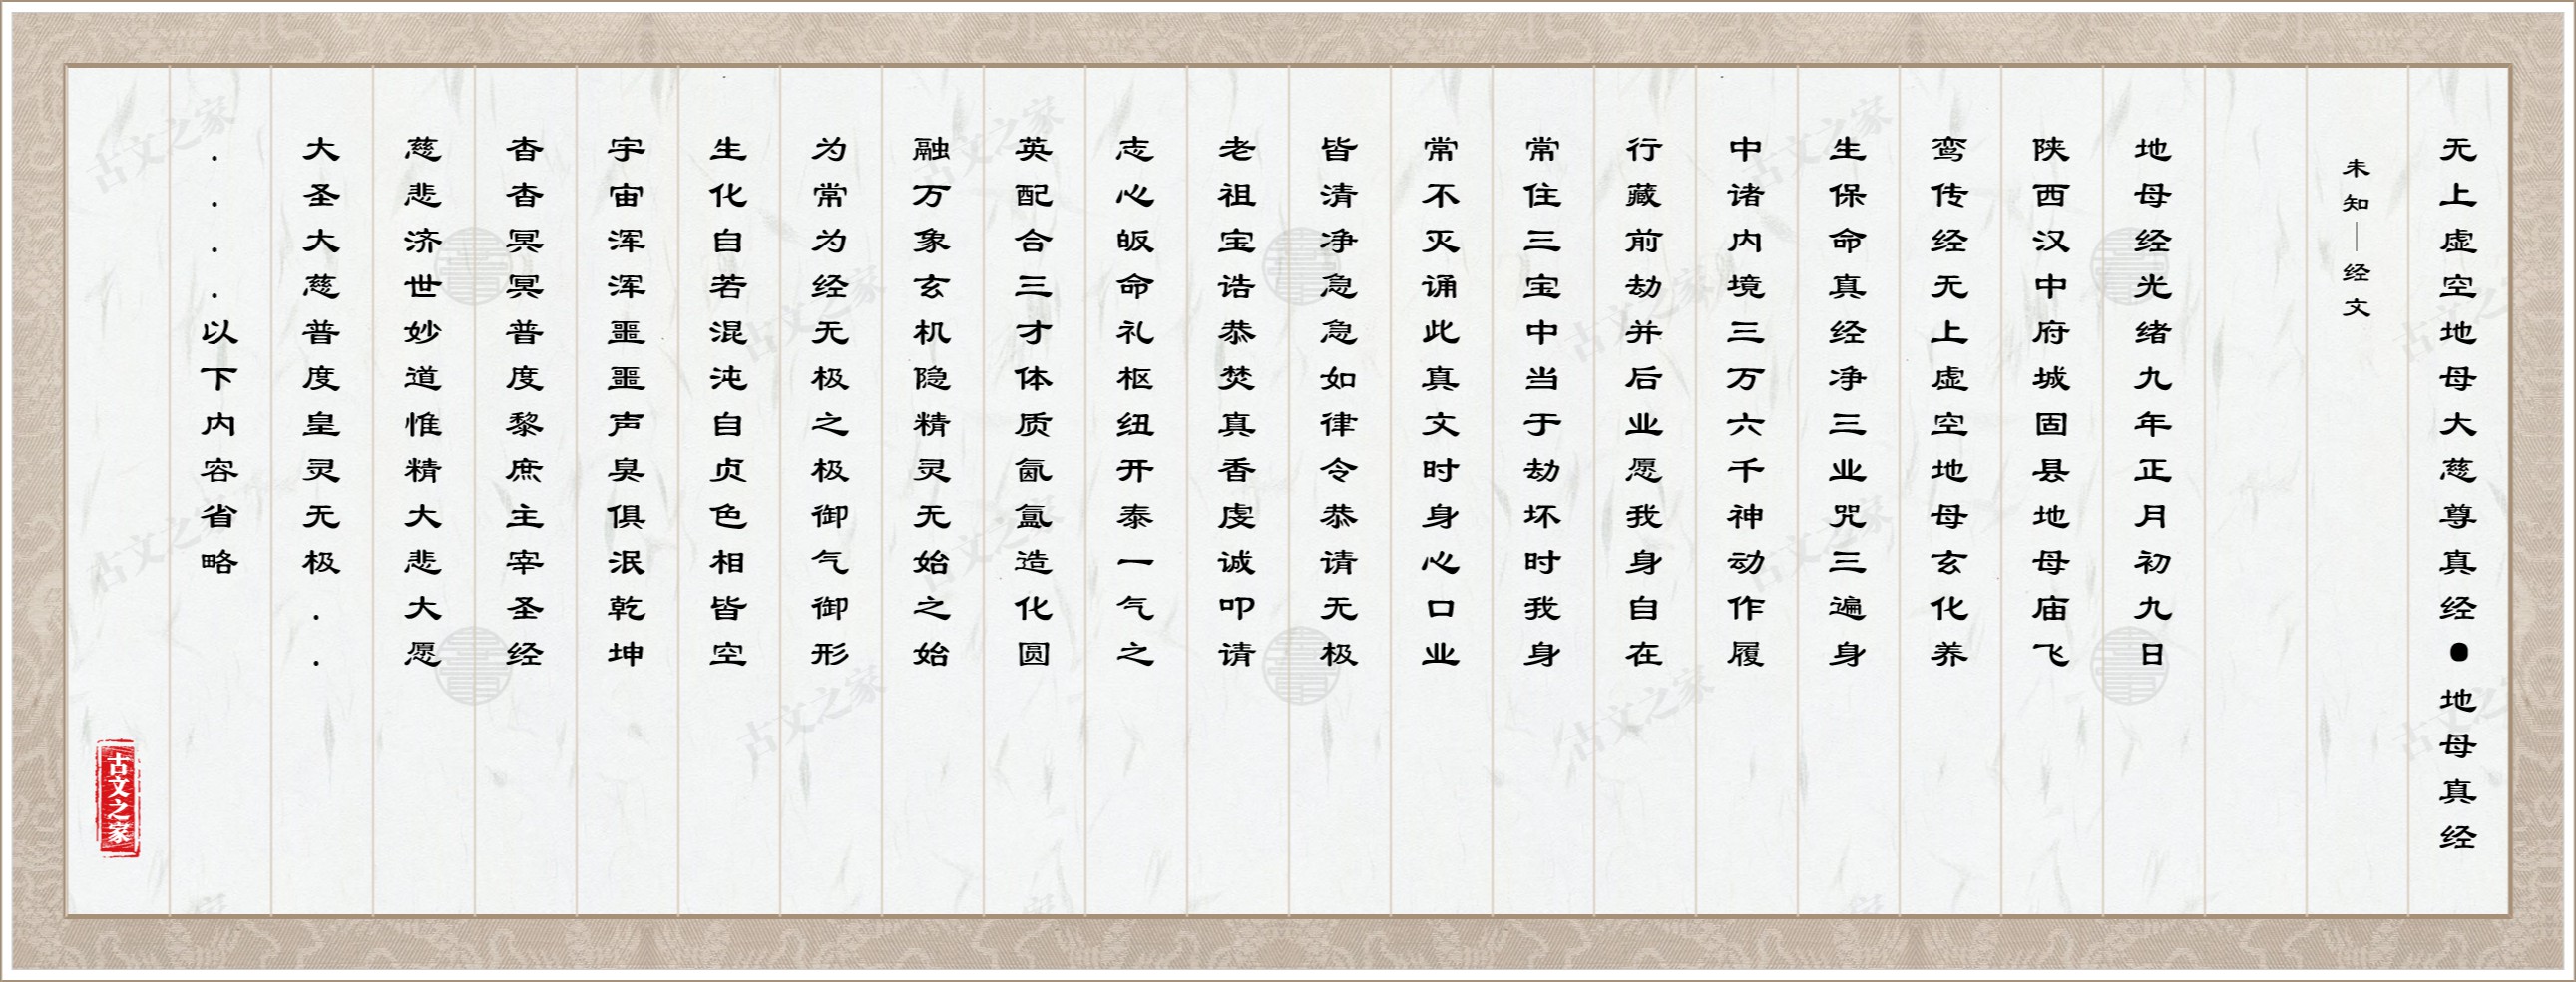 无上虚空地母大慈尊真经●地母真经
未知｜经文
地母经光绪九年正月初九日
陕西汉中府城固县地母庙飞
鸾传经无上虚空地母玄化养
生保命真经净三业咒三遍身
中诸内境三万六千神动作履
行藏前劫并后业愿我身自在
常住三宝中当于劫坏时我身
常不灭诵此真文时身心口业
皆清净急急如律令恭请无极
老祖宝诰恭焚真香虔诚叩请
志心皈命礼枢纽开泰一气之
英配合三才体质氤氲造化圆
融万象玄机隐精灵无始之始
为常为经无极之极御气御形
生化自若混沌自贞色相皆空
宇宙浑浑噩噩声臭俱泯乾坤
杳杳冥冥普度黎庶主宰圣经
慈悲济世妙道惟精大悲大愿
大圣大慈普度皇灵无极..
....以下内容省略
古文之家